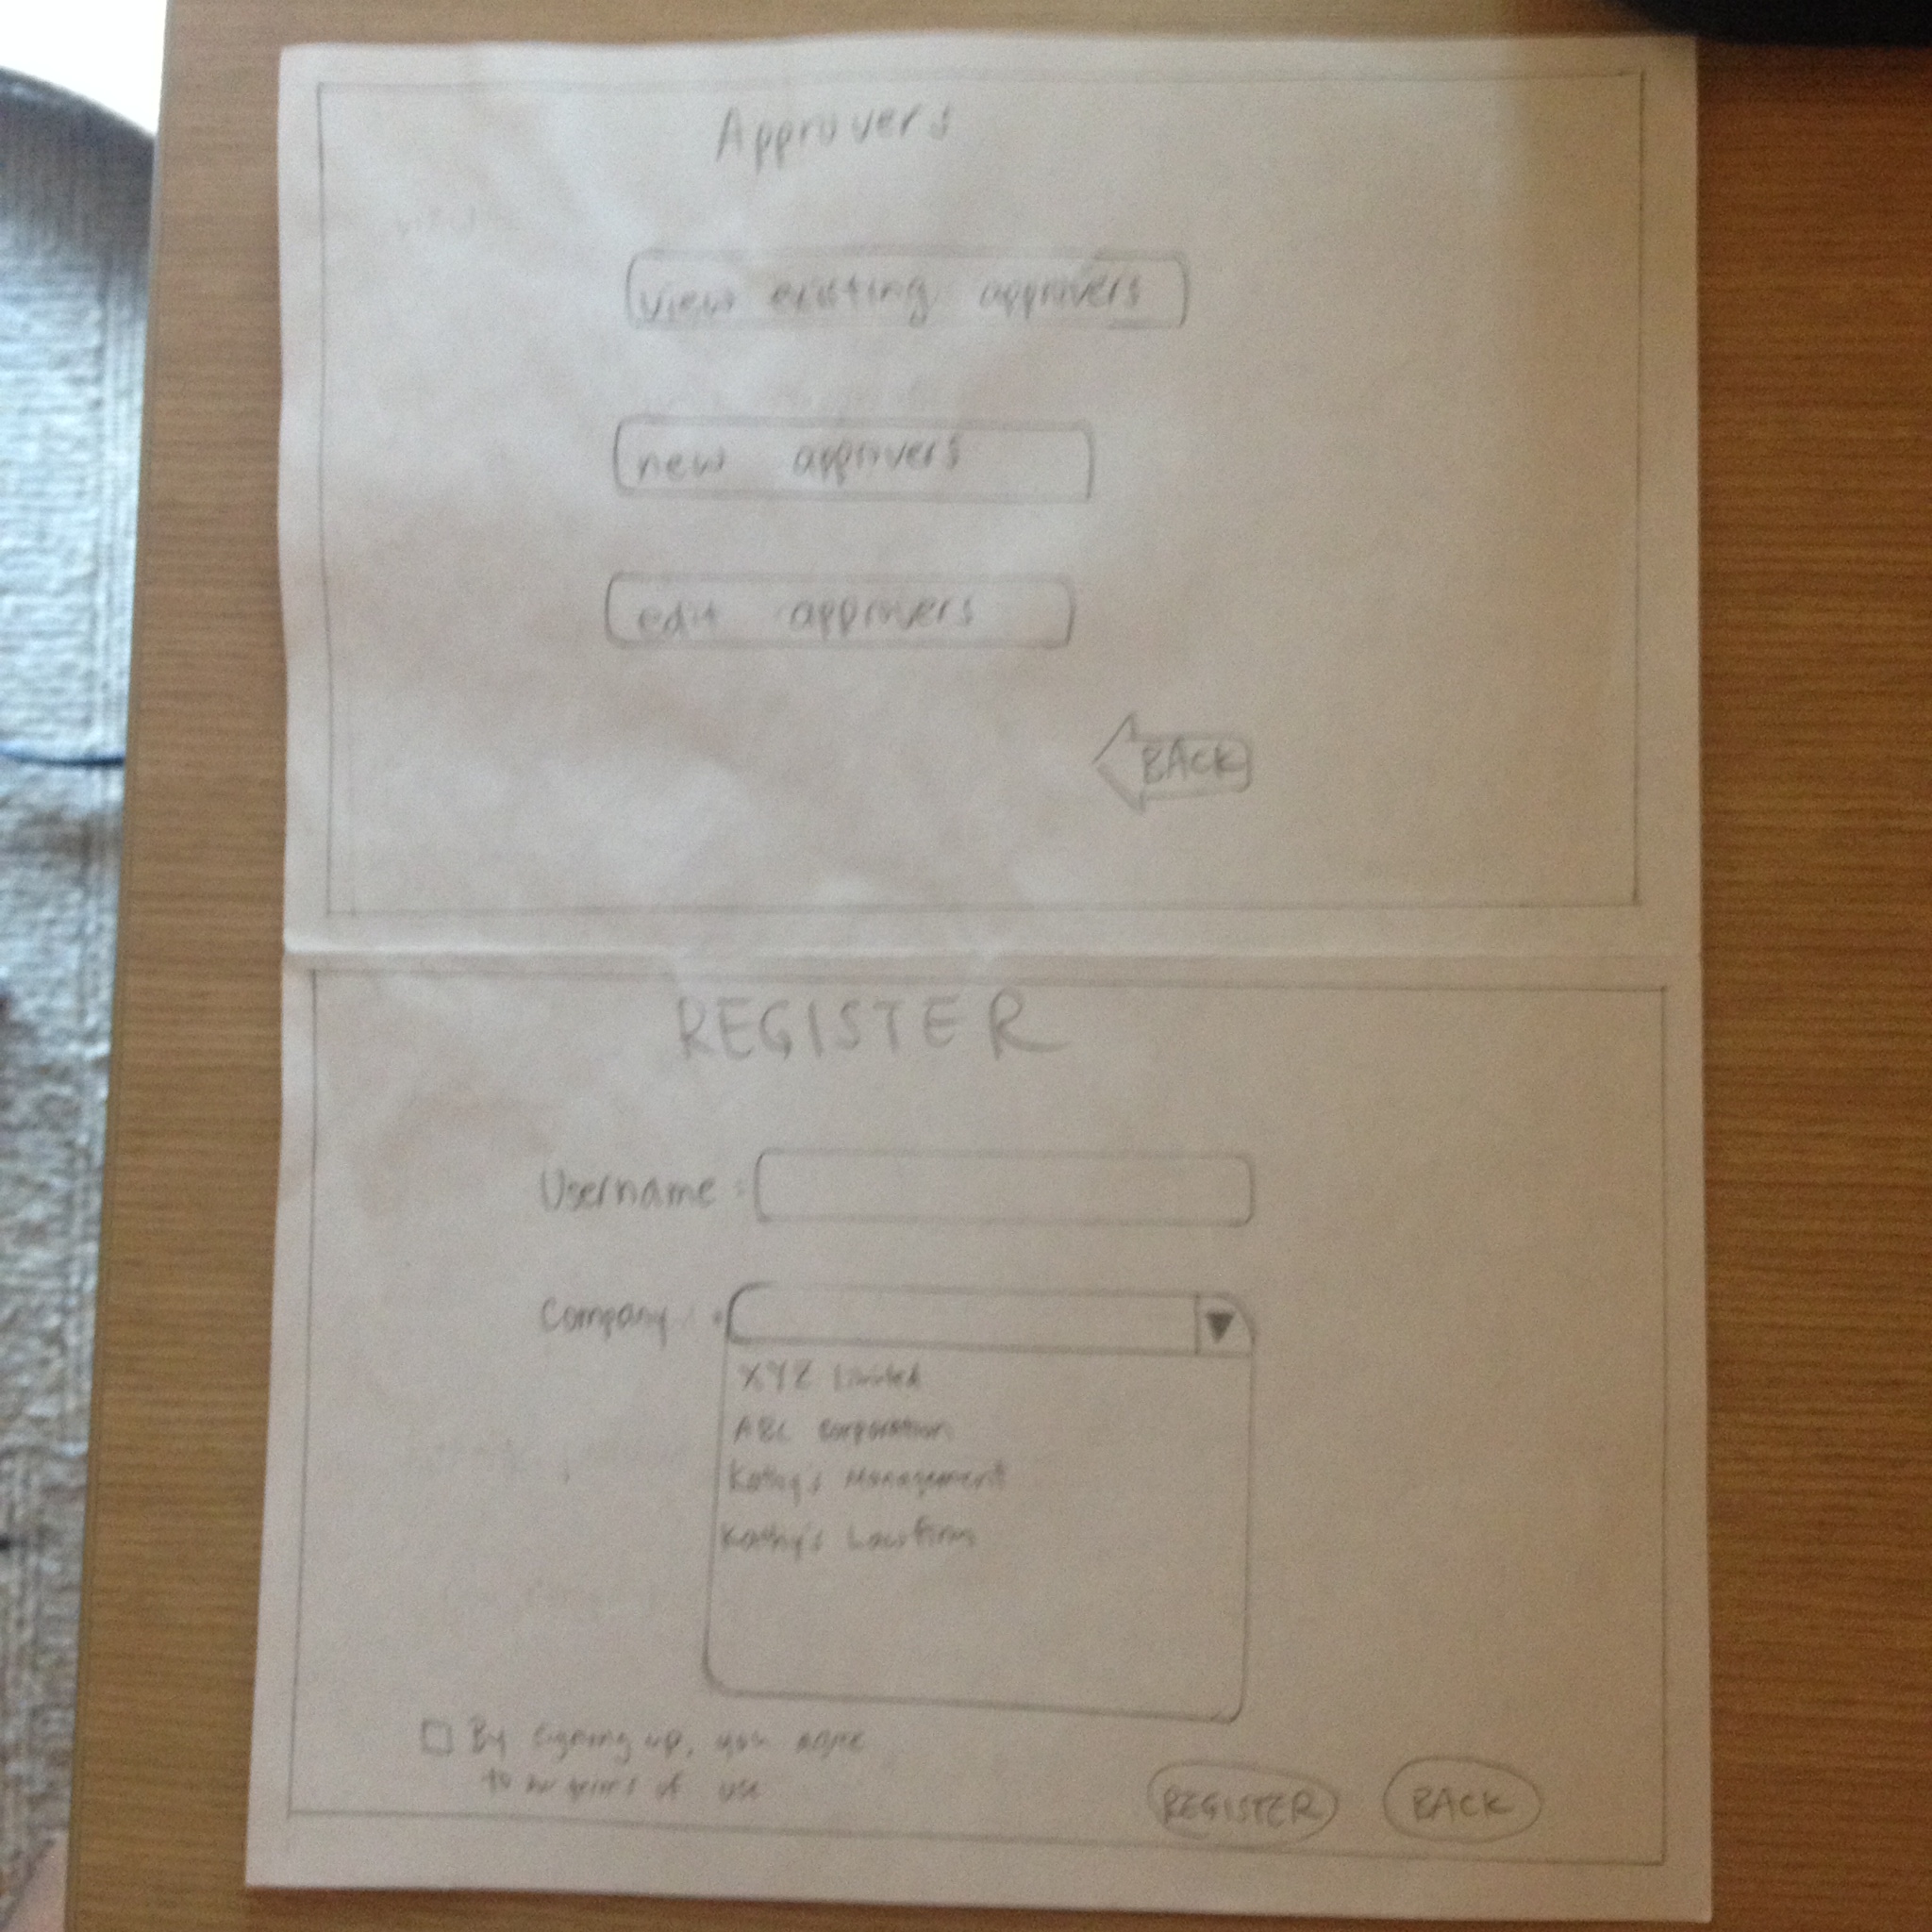 Approvers
view existing approvers
new approvers
edit approvers
BACK
REGISTER
Username :
Company :
XYZ Limited
ABC Corporation
Kathy's Management
Kathy's Lawfirm
By signing up, you agree
to our terms of use
REGISTER
BACK